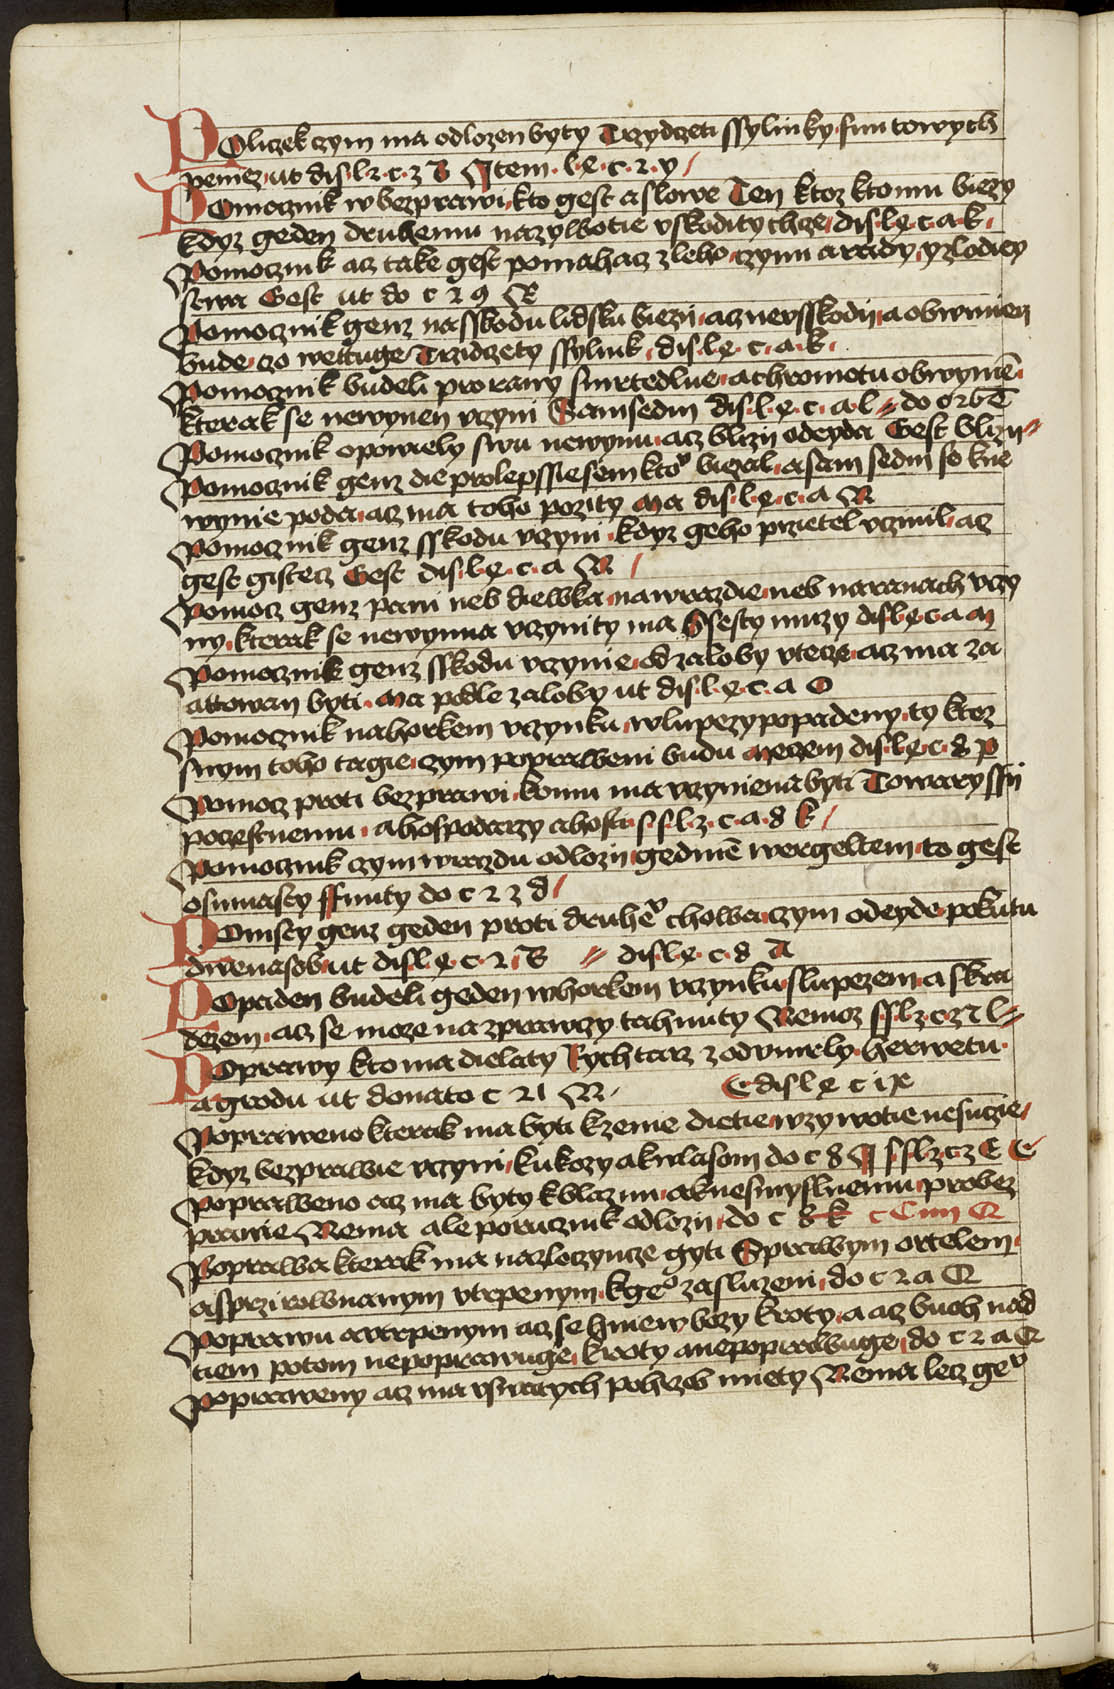 POliczek czym ma odlozen byty Trzydczeti ssylinky funtowych
peniez ut dis l 2 c 3 B Item l e c 2 y
POmocznik w bezprawi kto gest a slowe Ten ktoz ktomu biezy
kdyz geden druhemu nazywotie vskodity chcze dis l e c a k
Pomocznik acz take gest pomahacz zleho czynu a rady y zlodiey
stwa Gest ut do c 2 9 R
Pomocznik genz nasskodu lidsku biezij acz nevsskodij a obwinien
bude czo wettuge Trzidczety ssylink dis l e c a k
Pomocznik budeli pro rany smrtedlne a chromotu obwynien
kterak se newynen vczyni Samsedm dis l e c a l do
Pomocznik opowiely swu newynu acz blizij odeyda Gest blizij
Pomocznik genz die prolepssie sem kto biezal a sam sedm se kne
wynie poda acz ma toho pozity Ma dis l e c a R
Pomocznik genz sskodu vczyni kdyz geho przietel vczinil acz
gest gistecz Gest dis l e c a R
Pomocz genz pani neb diewka nawrazdie neb naranach vczy
ny kterak se newynna vczynity ma Ssesty muzy dis l e c a m
Pomocznik genz sskodu vczynie od zaloby vtecze acz ma za
attowan byti Ma podle zaloby ut dis l e c a O
Pomocznik nahorkem vczynku wlupezy popadeny ty ktoz
snym toho tagie czym poprawbeni budu Meczem dis l e c 8 p
Pomocz proti bezprawi komu ma vczyniena byti Towaryssij
poczestnemu a hospodarzy a hosti s s l z c a 8 k
Pomocznik czym wrazdu odlozij gedniem wergeltem to gest
osmnasty ffunty do c 2 3 d
POmsty genz geden proti druhe chowa czym odeyde pokutu
dwenasob ut dis l e c 2 B dis l e c 8 A
POpaden budeli geden whorkem vczynku slupezem a skra
dezem acz se moze nazprawczy tahnuty Nemoz s s l z c z l
POprawy kto ma dielaty Rychtarz zodvmrly herwetu
a gradu ut donato c 21 R c dis l e c ix
Poprawenokterak ma byti kzenie dietie wzywotie nesuczie
kdyz bezprawie vczyni kukozy akwlasom do c 8 s s l z c z C
Poprawbeno acz ma byty kblaznu aknesmyslnemu probez
prawie Nema ale porucznik odlozij do c 8 k
Poprawba kterak ma nazloczyncze gyti Sprawym ortelem
a sprzirownanym vtrpenym kge zasluzeni do c 2 a Q
Poprawu a vtrpenym acz se hniew bozy kroty a acz buoh nad
tiem potom nepoprawuge kroty anepoprawbuge do c 2 a Q
Popraweny acz ma vswatych pohrzeb miety Nema lecz ge